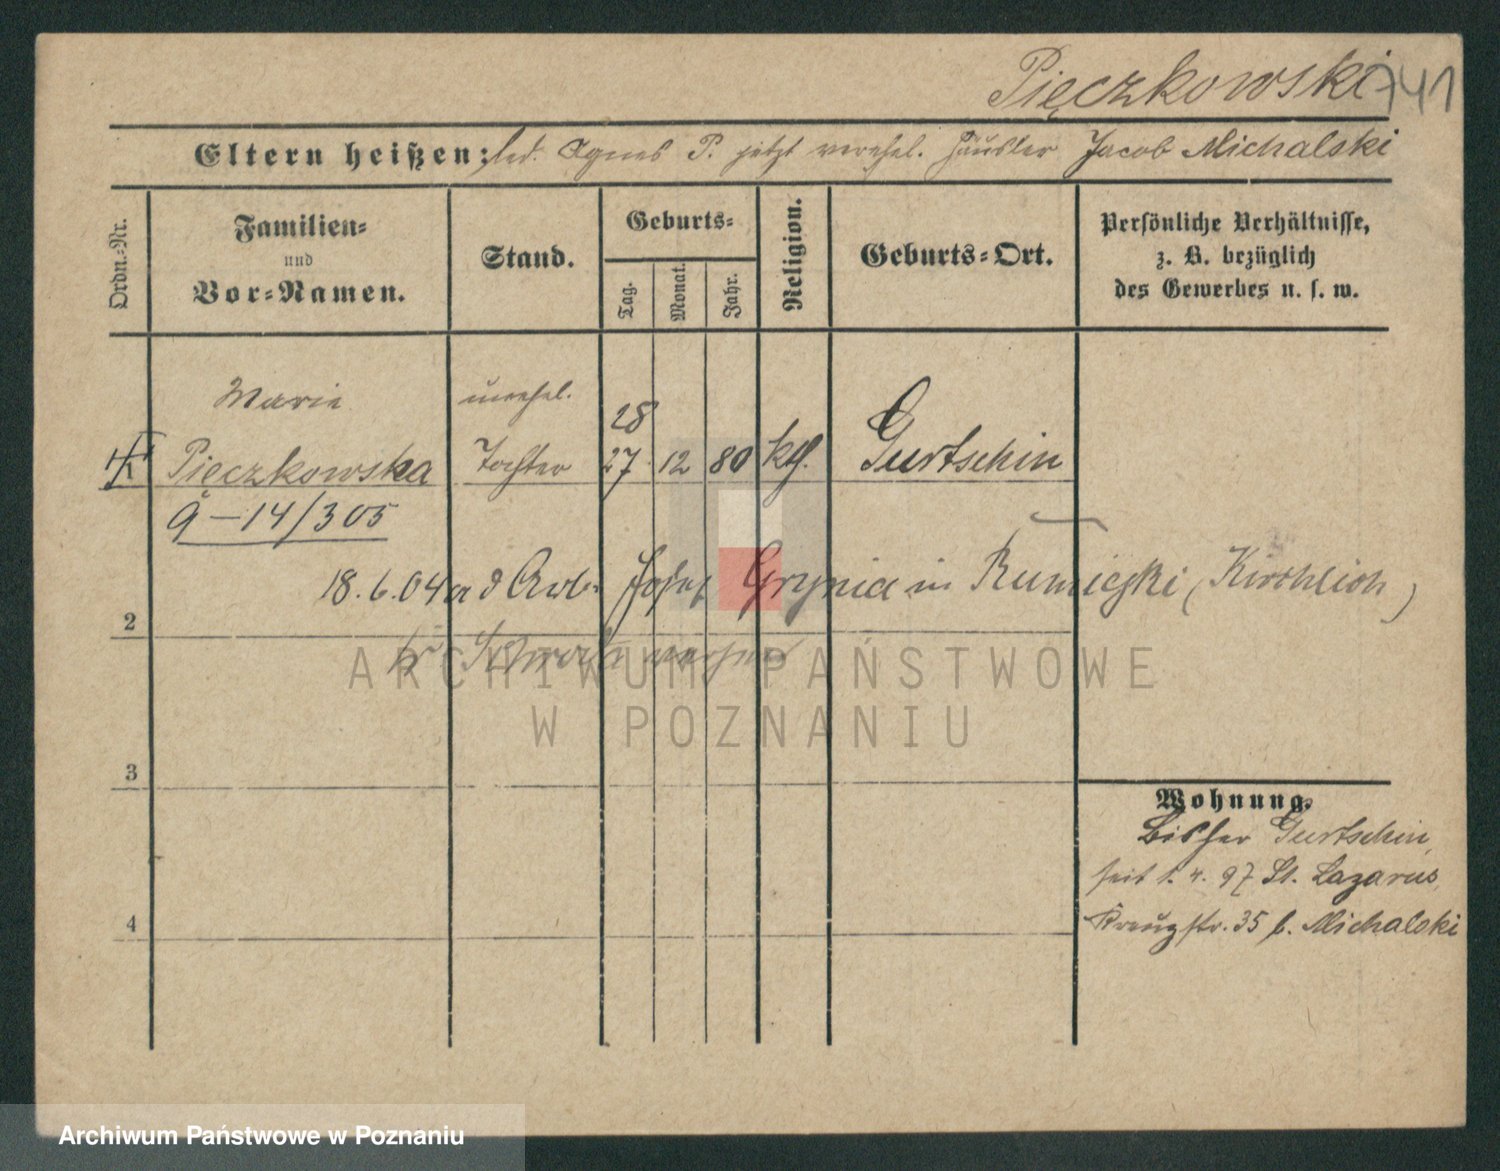 Pięczkowski 741
Eltern heißen: led. Agnes P. jetzt verehel. Häusler Jacob Michalski
Ordn.-Nr.
Familien-
und
Vor-Namen.
Stand.
Geburts-
Tag.
Monat.
Jahr.
Religion.
Geburts-Ort.
Persönliche Verhältnisse,
z. B. bezüglich
des Gewerbes u. s. w.
Marie unehel.
28
1 Pięczkowska Tochter 27 12 80 kth. Gurtschin
9-14/305
18.6.04 a d Arb. Josef in (Kirchlich)
2
3
Wohnung.
Bisher Gurtschin,
seit 1. 4. 97 St. Lazarus,
Kreuzstr. 35 b. Michalski
4
ARCHIWUM PAŃSTWOWE
W POZNANIU
Archiwum Państwowe w Poznaniu